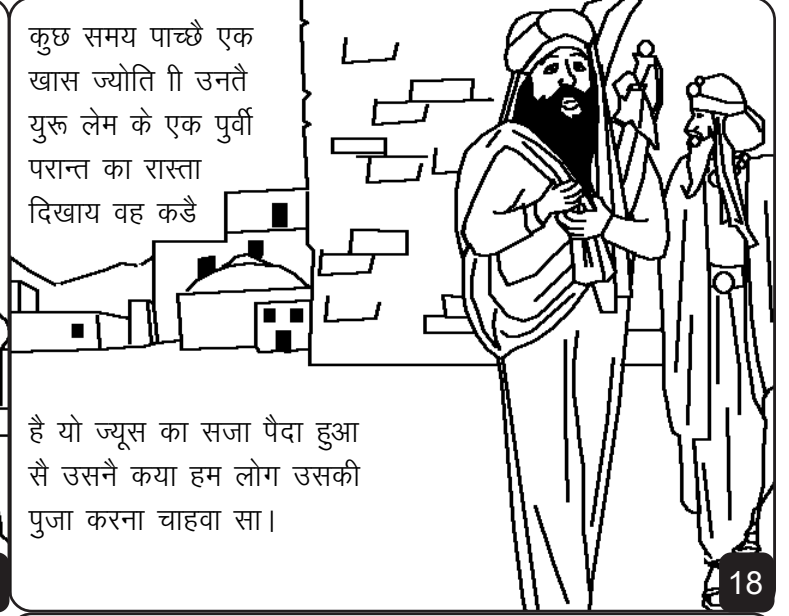 कुछ समय पाच्छै एक
खास ज्योति ाी उनतै
युरू लेम के एक पुर्वी
परान्त का रास्ता
दिखाय वह कडै
है यो ज्यूस का सजा पैदा हुआ
सै उसनै कया हम लोग उसकी
पुजा करना चाहवा सा।
18